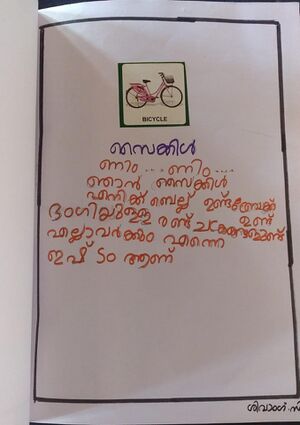 BICYCLE
സൈക്കിൾ
ണിം ... ണിം ...
ഞാൻ സൈക്കിൾ
എനിക്ക് ബെല്ല് ഉണ്ട് ബ്രേക്ക് ഉണ്ട്
ഭംഗിയുള്ള രണ്ട് ചക്രങ്ങളുണ്ട്
എല്ലാവർക്കും എന്നെ
ഇഷ്ടം ആണ്